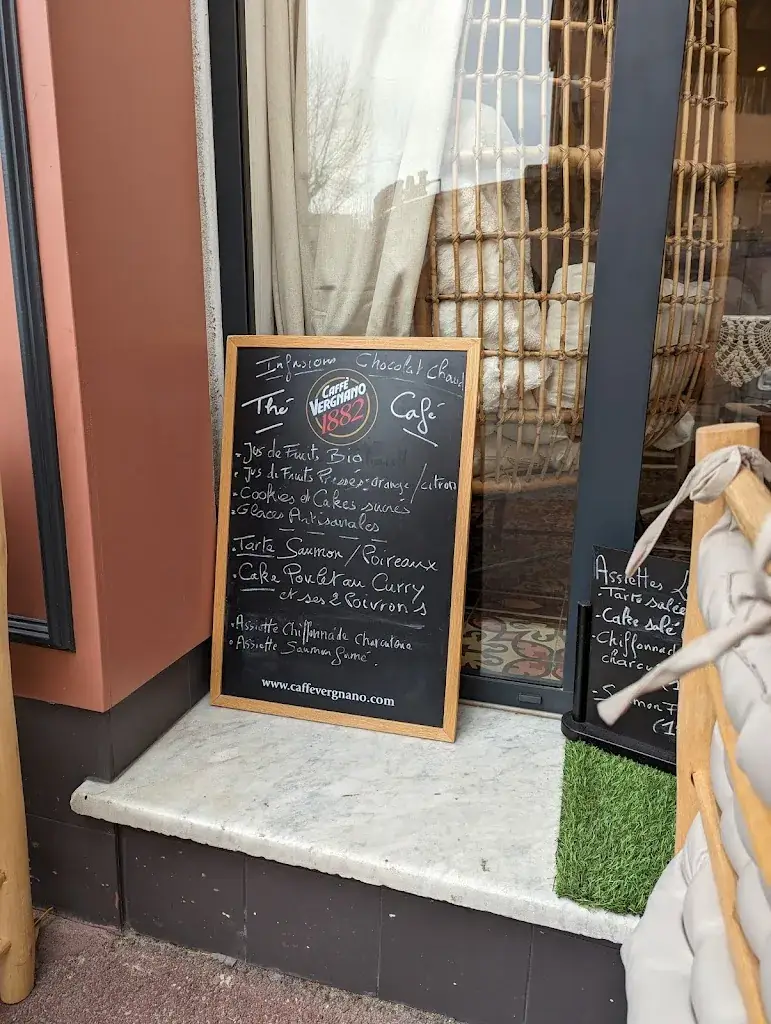 Infusions Chocolat Chaud
CAFFÈ
VERGNANO
1882
Thé Café
• Jus de Fruits Bio
• Jus de Fruits Pressés: orange / citron
• Cookies et Cakes sucrés
• Glaces Artisanales
• Tarte Saumon / Poireaux
• Cake Poulet au Curry
et ses 2 Poivrons
• Assiette Chiffonnade Charcuterie
• Assiette Saumon fumé.
www.caffevergnano.com
Assiettes
- Tarte salée
- Cake salé
- Chiffonnad
charcu
- Saumon F
(1